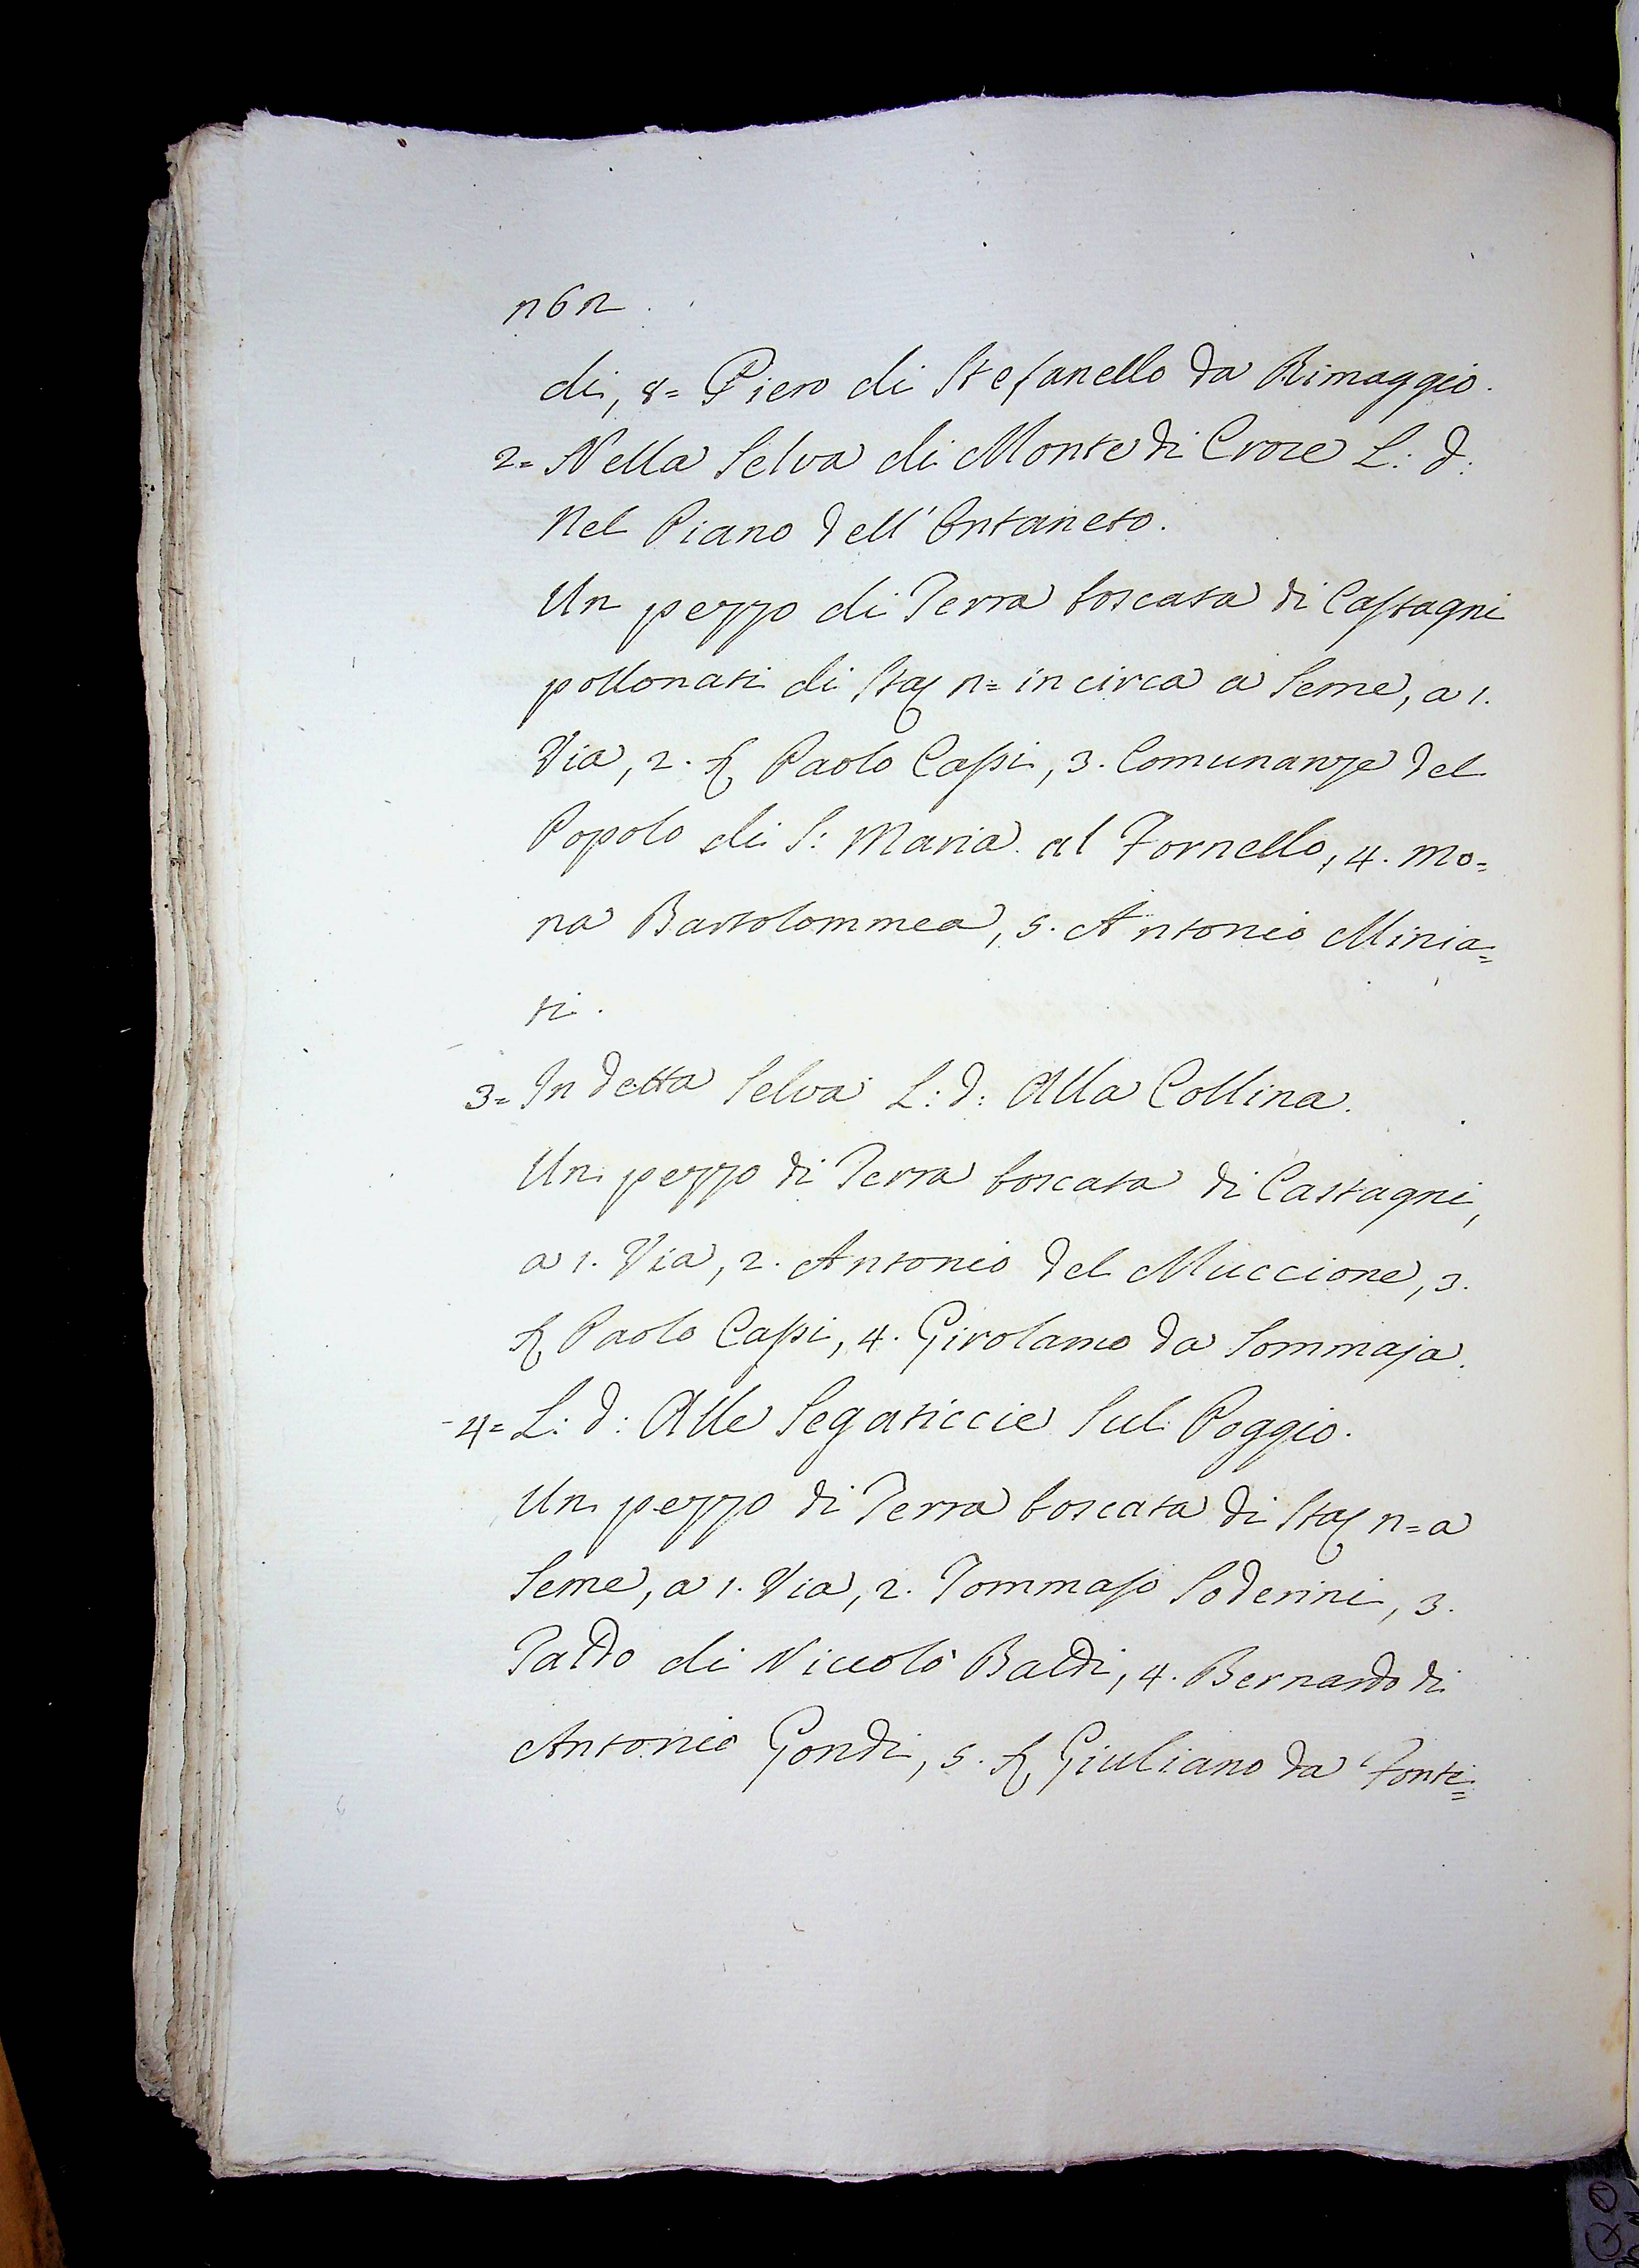 262.
di, 8= Piero di Stefanello da Rimaggio.
2= Nella Selva di Monte di Croce L: d:
Nel Piano dell'Ontaneto.
Un pezzo di Terra boscata di Castagni
pollonati di Sta: 2= in circa a Seme, a 1.
Via, 2. S. Paolo Cassi, 3. Comunanze del
Popolo di S: Maria al Fornello, 4. Mo=
na Bartolommea, 5. Antonio Minia=
ti.
3= In detta Selva L: d: Alla Collina.
Un pezzo di Terra boscata di Castagni,
a 1. Via, 2. Antonio del Muccione, 3.
S. Paolo Cassi, 4. Girolamo da Sommaja.
4= L: d: Alle Segaticcie Sul Poggio.
Un pezzo di Terra boscata di Sta: 2= a
Seme, a 1. Via, 2. Tommaso Soderini, 3.
Taddo di Niccolò Baldi, 4. Bernardo di
Antonio Gondi, 5. S. Giuliano da Fonti=